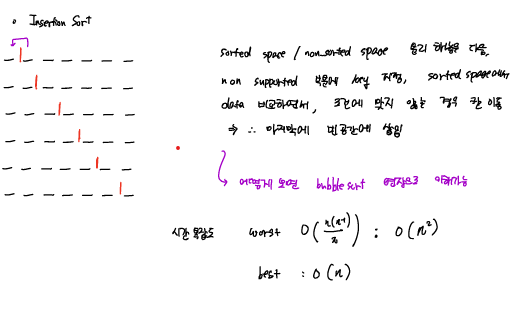 Insertion Sort
sorted space / non_sorted space 분리 하는 다음,
non supported 부분에 key 지정, sorted space에서
data 비교하면서, 조건에 맞지 않는 경우 칸 이동
⇒ ∴ 마지막에 빈공간에 삽입
어떻게 보면 bubble sort 연장으로 이해가능
시간 복잡도 worst O(n(n-1)/2) : O(n²)
best : O(n)